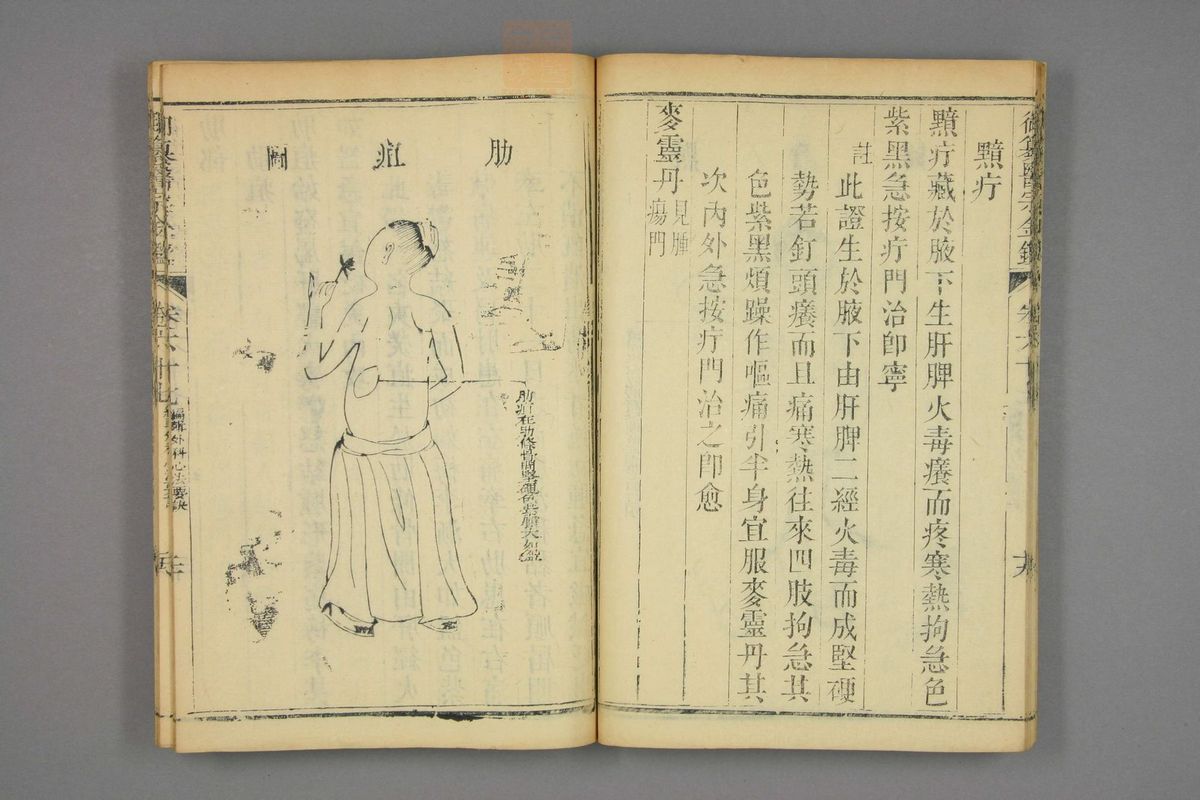 黶疔
黶疔藏於腋下生肝脾火毒癢而疼寒熱拘急色
紫黑急按疔門治卽寧
註此證生於腋下由肝脾二經火毒而成堅硬
勢若釘頭癢而且痛寒熱往來四肢拘急其
色紫黑煩躁作嘔痛引半身宜服麥靈丹其
次內外急按疔門治之卽愈
麥靈丹見腫
瘍門
肋疽圖
御纂醫宗金鑑
卷六十七
編輯外科心法要訣